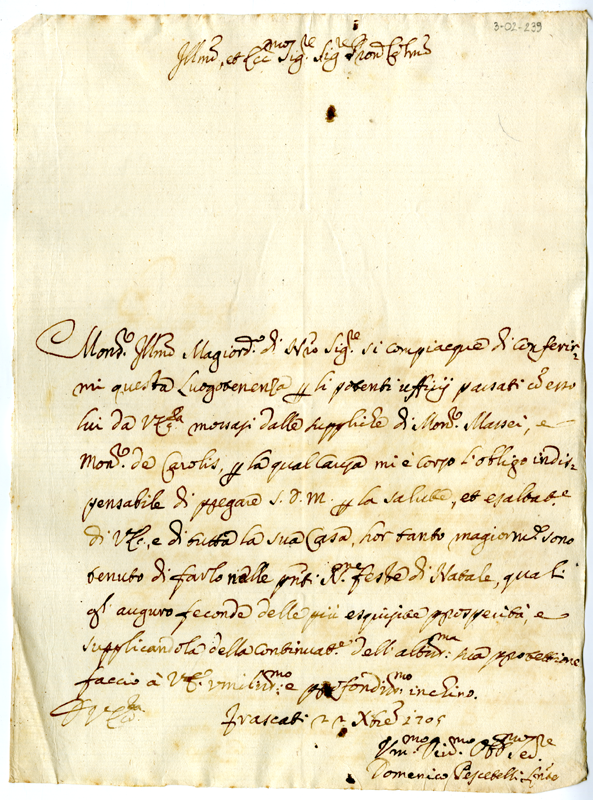 3-02-239
Illmo, et Ecc.mo Sig.re Sig.re Pron Colmo
Mons.r Illmo Magiord.o di Nro Sig.re si compiacque di conferir=
mi questa Luogotenenza p li potenti uffizij passati cō esso
lui da V.Ecc.za mossasi dalle suppliche di Mons.r Massei, e
Mons.r de Carolis, p la qual causa mi è corso l'obligo indis=
pensabile di pregare S.D.M. p la salute, et esaltat.e
di V.E., e di tutta la sua Casa, hor tanto magiorm.e sono
tenuto di farlo nelle pnti S.me feste di Natale, quali
gl'auguro feconde delle più esquisite prosperità, e
supplicandola della continuat.e dell'altiss.ma sua protettione
faccio à V.E. umiliss.mo e profondiss.mo inchino.
D V.Ecc.za Frascati 22 Xbre 1705
Um.mo Div.mo Obb.mo Ser.re
Domenico Pescetelli